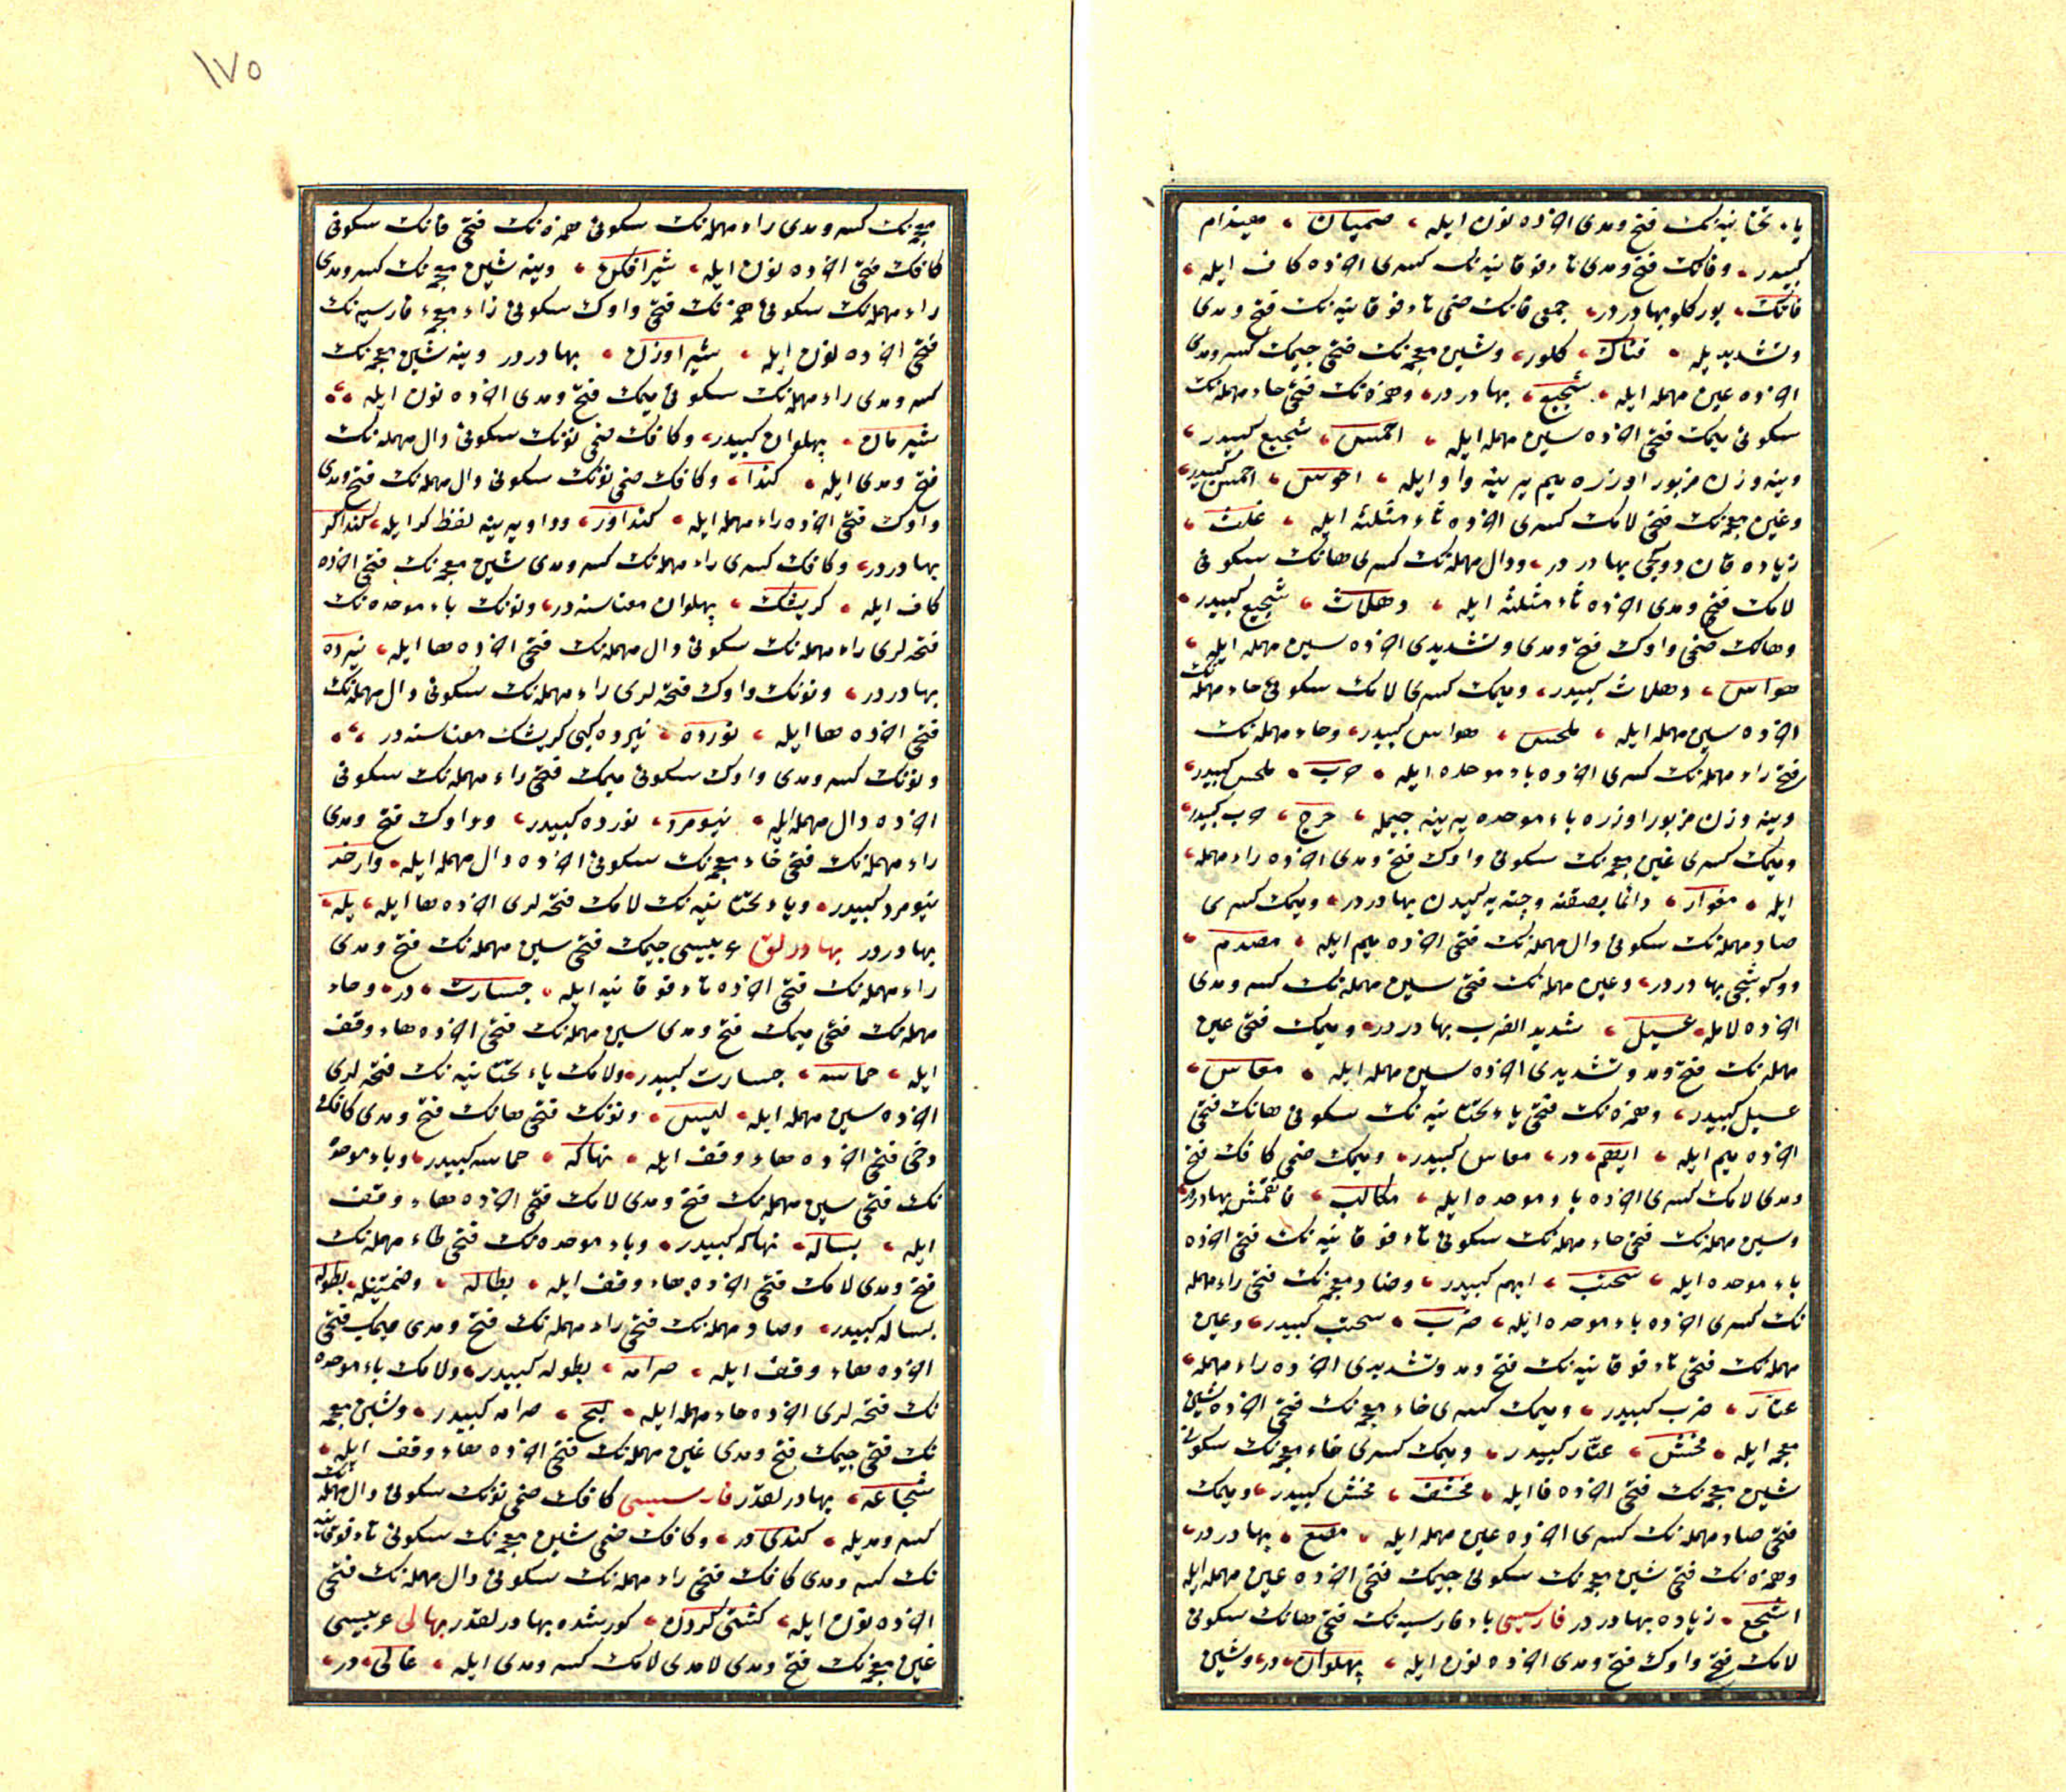 ياء تحتانيه نك فتح ومدى اخرده نون ايله، صميان، هيندام
كبيدر، وفانك فتح ومدى تاء فوقانيه نك كسرى اخرده كاف ايله،
فاتك، يوركلو بهادردر، جمعى فانك ضمى تاء فوقانيه نك فتح ومدى
وتشديديله، فتاك، كلور، وشين معجمه نك فتحى جيمك كسر ومدى
اخرده عين مهمله ايله، شجيع، بهادردر، وهمزه نك فتحى حاء مهمله نك
سكونى ميمك فتحى اخرده سين مهمله ايله، احمس، شجيع كبيدر،
وينه وزن مزبور اوزره ميم يرينه واو ايله، احوس، احمس كبيدر،
وغين معجمه نك فتحى لامك كسرى اخرده ثاء مثلثه ايله، غلث،
زياده قان دوكجى بهادردر، ودال مهمله نك كسرى هانك سكونى
لامك فتح ومدى اخرده ثاء مثلثه ايله، دهلاث، شجيع كبيدر،
وهانك فتحى واوك فتح ومدى وتشديدى اخرده سين مهمله ايله،
هواس، دهلاث كبيدر، وميمك كسرى لامك سكونى حاء مهمله نك
اخرده سين مهمله ايله، ملحس، هواس كبيدر، وحاء مهمله نك
فتح راء مهمله نك كسرى اخرده باء موحده ايله، حرب، ملحس كبيدر،
وينه وزن مزبور اوزره باء موحده يرينه جيمله، حرج، حرب كبيدر،
وميمك كسرى غين معجمه نك سكونى واوك فتح ومدى اخرده راء مهمله
ايله، مغوار، دائما بصقنه وجته يه كيدن بهادردر، وميمك كسرى
صاد مهمله نك سكونى دال مهمله نك فتحى اخرده ميم ايله، مصدم،
دوكوشجى بهادردر، وعين مهمله نك فتحى سين مهمله نك كسر ومدى
اخرده لامله، عسيل، شديد الضرب بهادردر، وميمك فتحى عين
مهمله نك فتح ومد وتشديدى اخرده سين مهمله ايله، معاس،
عسيل كبيدر، وهمزه نك فتحى ياء تحتانيه نك سكونى هانك فتحى
اخرده ميم ايله، ايهم، در، معاس كبيدر، وميمك ضمى كافك فتح
ومدى لامك كسرى اخرده باء موحده ايله، مكالب، بهادردر
وسين مهمله نك فتحى حاء مهمله نك سكونى تاء فوقانيه نك فتحى اخرده
باء موحده ايله، سحتب، ايهم كبيدر، وضاد معجمه نك فتحى راء مهمله
نك كسرى اخرده باء موحده ايله، ضرب، سحتب كبيدر، وعين
مهمله نك فتحى تاء فوقانيه نك فتح ومد وتشديدى اخرده راء مهمله
عتار، ضرب كبيدر، وميمك كسرى خاء معجمه نك فتحى اخرده شين
معجمه ايله، مخش، عتار كبيدر، وميمك كسرى خاء معجمه نك سكونى
شين معجمه نك فتحى اخرده فا ايله، مخشف، مخش كبيدر، وميمك
فتحى صاد مهمله نك كسرى اخرده عين مهمله ايله، مصع، بهادردر،
وهمزه نك فتحى شين معجمه نك سكونى جيمك فتحى اخرده عين مهمله ايله
اشجع، زياده بهادردر فارسيسى باء فارسيه نك فتحى هانك سكونى
لامك فتح واوك فتح ومدى اخرده نون ايله، پهلوان، در، وشين
١٧٥
معجمه نك كسر ومدى راء مهمله نك سكونى همزه نك فتحى فانك سكونى
كافك فتحى اخرده نون ايله، شيرافكن، وينه شين معجمه نك كسر ومدى
راء مهمله نك سكونى همزه نك فتحى واوك سكونى زاء معجمه فارسيه نك
فتحى اخرده نون ايله، شيراوژن، بهادردر وينه شين معجمه نك
كسر ومدى راء مهمله نك سكونى ميمك فتح ومدى اخرده نون ايله،
شيرمان، پهلوان كبيدر، وكافك ضمى نونك سكونى دال مهمله نك
فتح ومدى ايله، كندا، وكافك ضمى نونك سكونى دال مهمله نك فتح ومدى
واوك فتحى اخرده راء مهمله ايله، كنداور، وواو يرينه لفظ كر ايله، كنداكر
بهادردر، وكافك كسرى راء مهمله نك كسر ومدى شين معجمه نك فتحى اخرده
كاف ايله، كريشك، پهلوان معناسنه در، ونونك باء موحده نك
فتحه لرى راء مهمله نك سكونى دال مهمله نك فتحى اخرده ها ايله، نبرده
بهادردر، ونونك واوك فتحه لرى راء مهمله نك سكونى دال مهمله نك
فتحى اخرده ها ايله، نورده، نبرده كبى كريشك معناسنه در،
ونونك كسر ومدى واوك سكونى ميمك فتحى راء مهمله نك سكونى
اخرده دال مهمله ايله، نيومرد، نورده كبيدر، وواوك فتح ومدى
راء مهمله نك فتحى خاء معجمه نك سكونى اخرده دال مهمله ايله، وارخد
نيومرد كبيدر، وياء تحتانيه نك لامك فتحه لرى اخرده ها ايله، يله،
بهادردر بهادرلق عربيسى جيمك فتحى سين مهمله نك فتح ومدى
راء مهمله نك فتحى اخرده تاء فوقانيه ايله، جسارت، در، وحاء
مهمله نك فتحى ميمك فتح ومدى سين مهمله نك فتحى اخرده هاء وقف
ايله، حماسه، جسارت كبيدر، ولامك ياء تحتانيه نك فتحه لرى
اخرده سين مهمله ايله، ليس، ونونك فتحى هانك فتح ومدى كافك
دخى فتحى اخرده هاء وقف ايله، نهاكه، حماسه كبيدر، وباء موحده
نك فتحى سين مهمله نك فتح ومدى لامك فتحى اخرده هاء وقف
ايله، بساله، نهاكه كبيدر، وباء موحده نك فتحى طاء مهمله نك
فتح ومدى لامك فتحى اخرده هاء وقف ايله، بطاله، وضمتينله، بطوله
بساله كبيدر، وصاد مهمله نك فتحى راء مهمله نك فتح ومدى ميمك فتحى
اخرده هاء وقف ايله، صرامه، بطوله كبيدر، ولامك باء موحده
نك فتحه لرى اخرده حاء مهمله ايله، لبح، صرامه كبيدر، وشين معجمه
نك فتحى جيمك فتح ومدى عين مهمله نك فتحى اخرده هاء وقف ايله،
شجاعه، بهادرلقدر فارسيسى كافك ضمى نونك سكونى دال مهمله نك
كسر ومديله، كندى در، وكافك ضمى شين معجمه نك سكونى تاء فوقانيه
نك كسر ومدى كافك فتحى راء مهمله نك سكونى دال مهمله نك فتحى
اخرده نون ايله، كشتى كردن، كورشده بهادرلقدر بهالى عربيسى
غين معجمه نك فتح ومدى لامك كسر ومدى ايله، غالى، در،